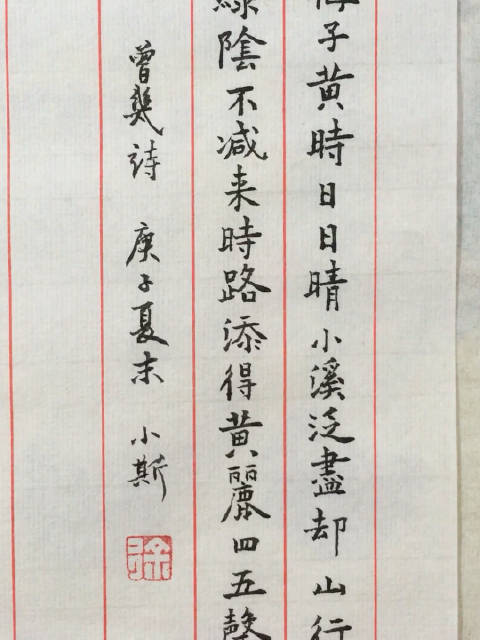 梅子黄時日日晴小溪泛盡却山行
綠陰不减来時路添得黄麗四五聲
曾幾詩 庚子夏末 小斯
徐